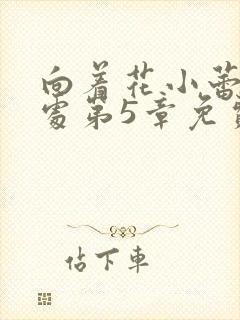 向着花小蕾
处第5章免费
估下车